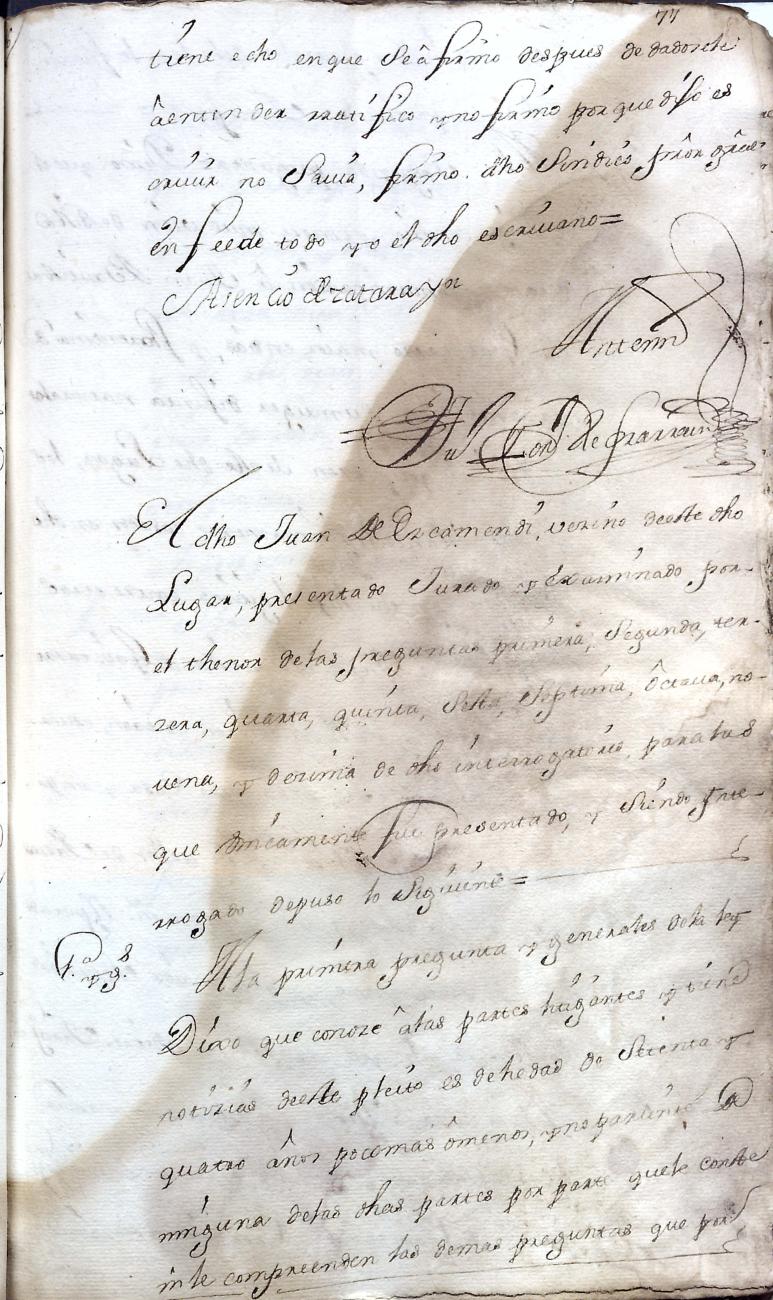 77
tiene echo en que se âfirmo despues de dadosele
âentender rratifico y no firmo por que dijo es
criuir no Sauia, firmo dho Sindico prôr grâl
en fee de todo yo el dho escriuano=
Asencio de Zatarayn
Antemi
El dho Juan de Ezcamendi, vezino deeste dho
Lugar, presentado Jurado y examinado por
el thenor de las preguntas primera, Segunda, ter-
zera, quarta, quinta, sesta, septima, ôctaua, no-
uena, y dezima de dho interrogatorio, para las
que unicamente fue presentado, y siendo Inte-
rrogado depuso lo Siguiente=
1.ª y g.s
A la primera pregunta y generales de la ley
Dixo que conoze â las partes litigantes y tiene
notizias deeste pleito es de hedad de Setenta y
quatro años poco mas ômenos, y no pariente de
ninguna delas dhas partes por parte quele conste
ni le compreenden las demas preguntas que por